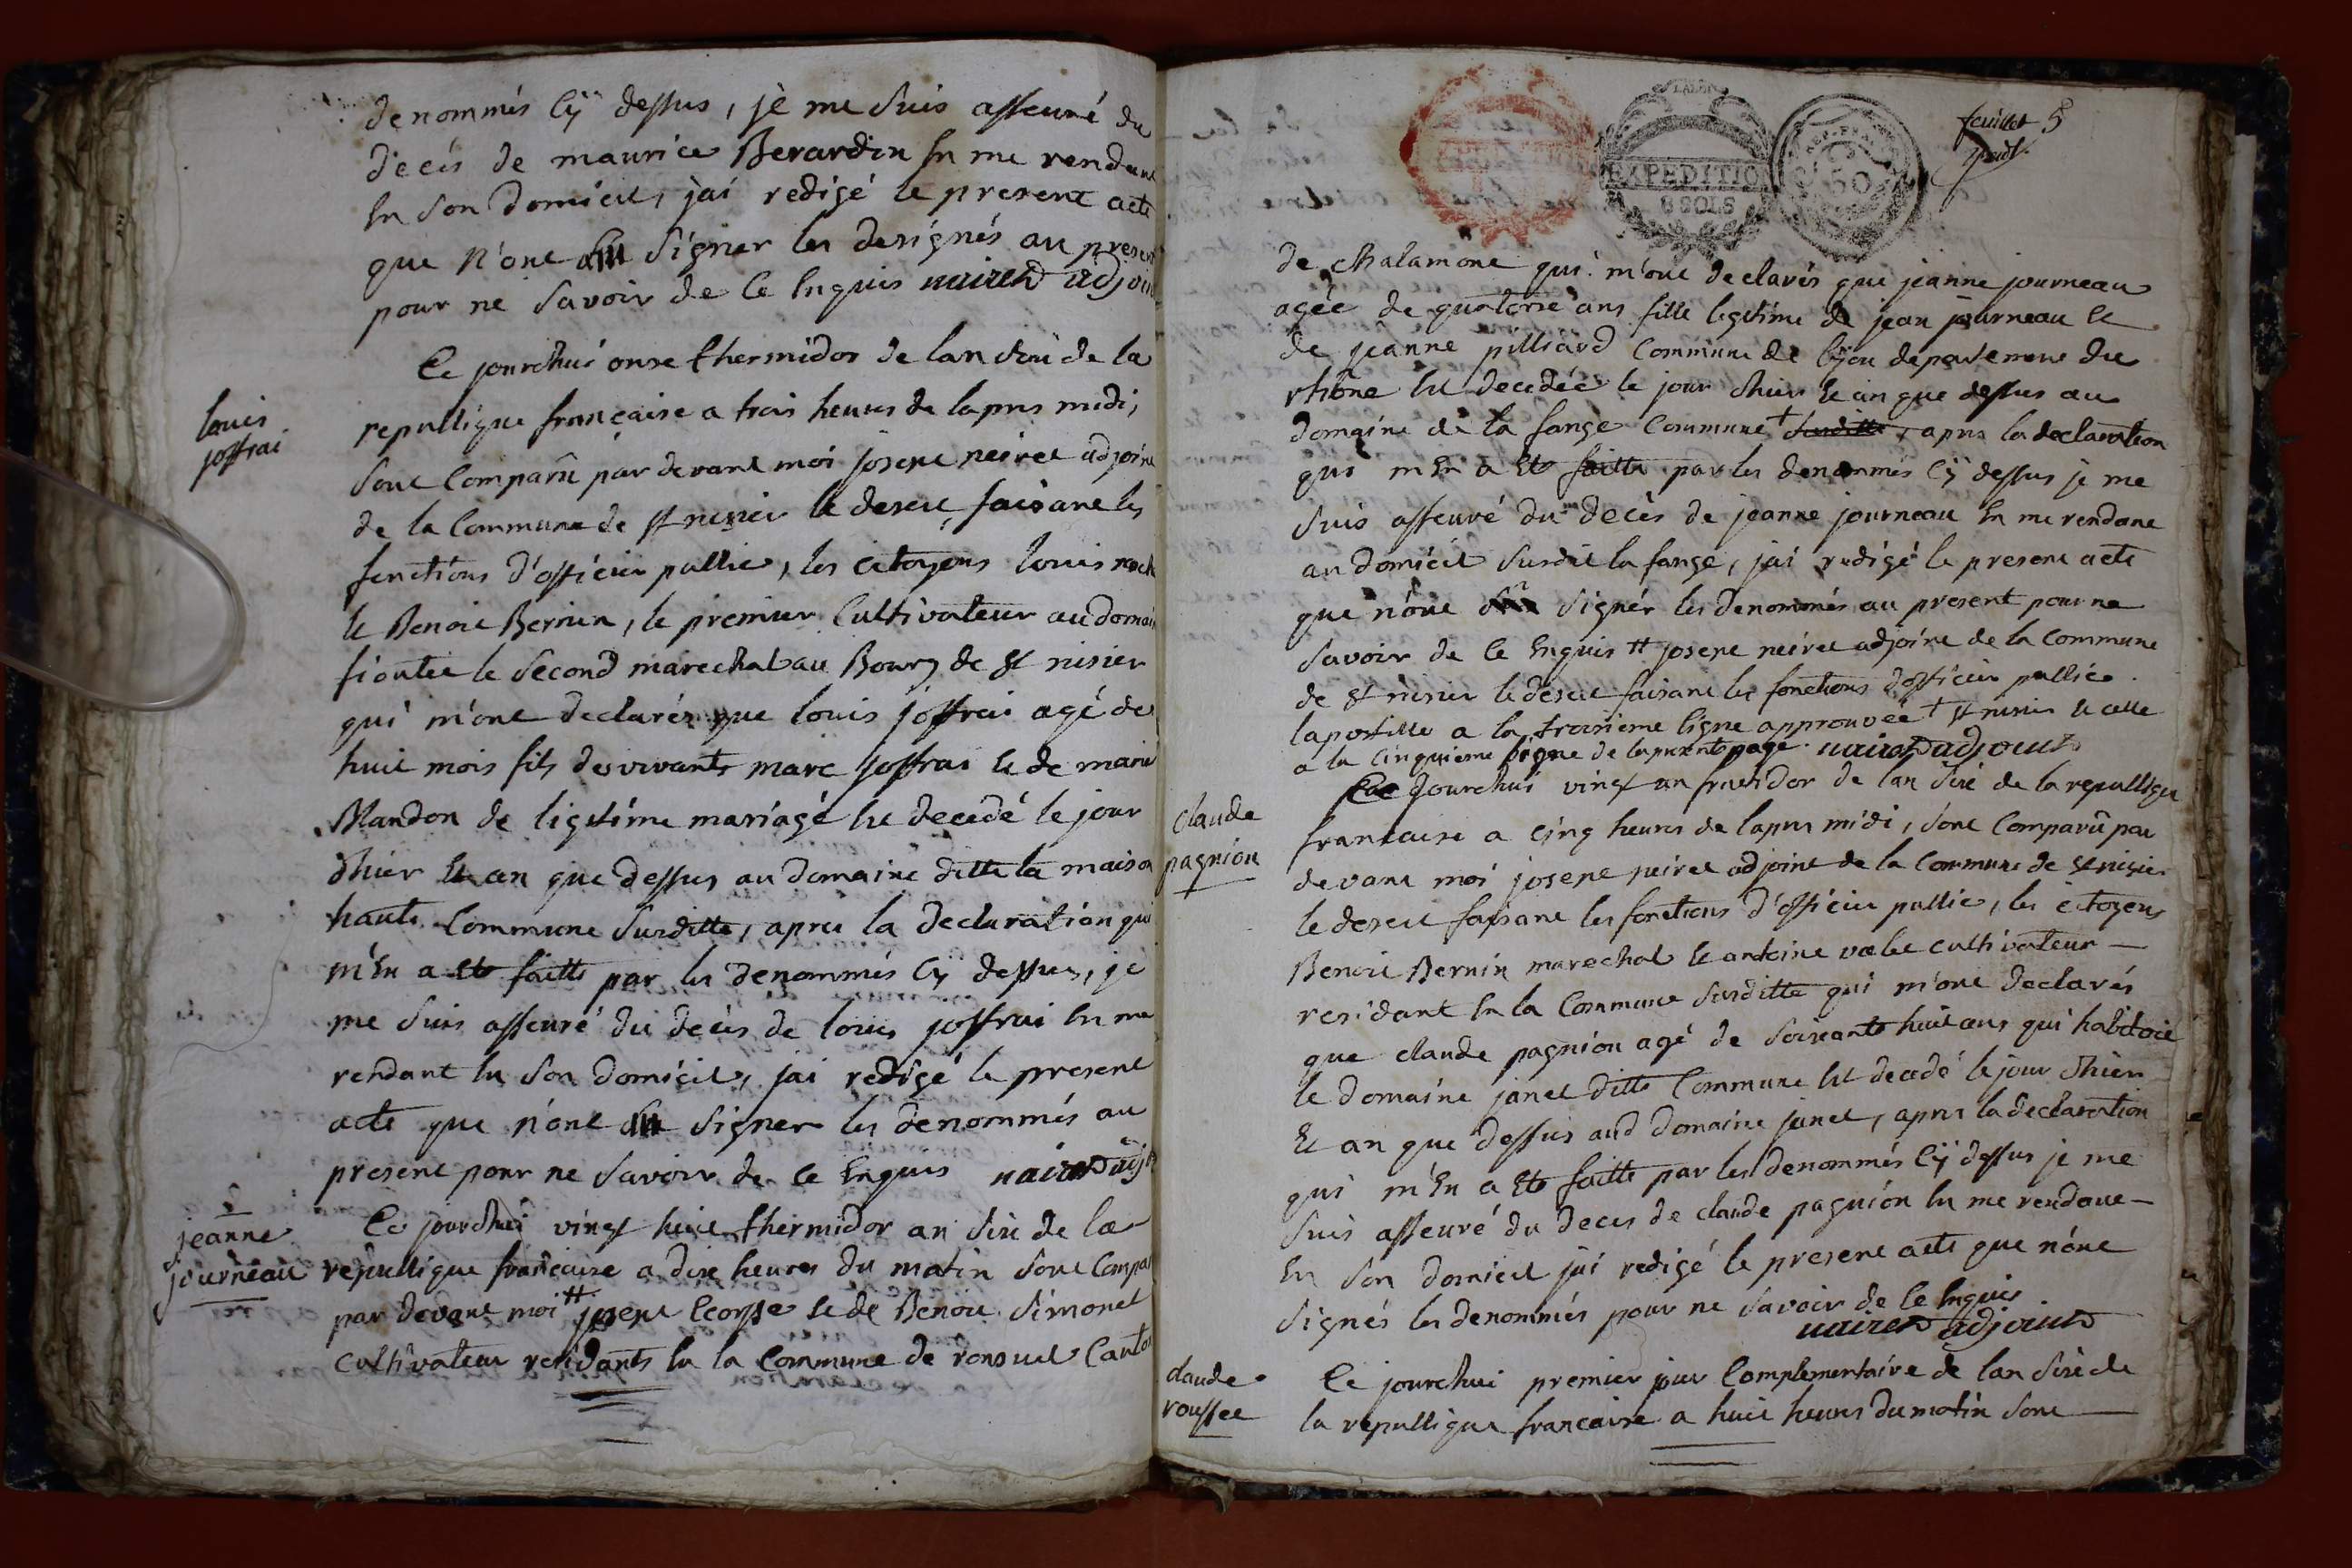 denommés cÿ dessus, jè me suis asseuré du
decés de maurice Berardin En me rendant
En son domicil, jai redigé le present acte
que n'ont signer les designés au present
pour ne savoir de ce Enquis nairet adjoint
Ce jourdhui onse thermidor de lan sixe de la
louis
joffrai
republique française a trois heures de lapres midi,
sont comparû par devant moi josept neiret adjoint
de la commune de st nisier le desert, faisant les
fonctions d'officier pullic, les citoyens louis
Et Benoit Bernin, le premier cultivateur au domaine
le second marechal au Bourg de st nisier
qui m'ont declarés que louis joffrai agé de
huit mois fils des vivants marc joffrai Et de marie
Mandon de ligitime mariagé Est decedé le jour
dhier Et an que dessus au domaine ditte la maison
haute commune susditte, apres la declaration qui
m'En a Eté faitte par les denommés cÿ dessus, je
me suis asseuré du decès de louis joffrai En me
rendant En son domicil, jai redigé le present
acte que n'ont signer les denommés au
present pour ne savoir de ce Enquis nairet adjt
jeanne
journeau
Ce jourdhui vingt huit thermidor an sixe de la
repullique française a dixe heures du matin sont compar
par devant moi # josept Et de Benoit simonet
cultivateur residants En la commune de ronsuel canton
feuillet 5
EXPEDITIO
8 SOLS
50
de chalamont qui m'ont declarés que jeanne journeau
agée de quatorse ans fille legitime de jean journeau Et
de jeanne pilliard commune de lÿon departement du
rhône Est decedée le jour dhier Et an que dessus au
domaine de la fange commune + susditte, apres la declaration
qui m'En a Eté faitte par les denommés cÿ dessus je me
suis asseuré du decès de jeanne journeau En me rendant
au domicil susdit la fange, jai redigé le present acte
que n'ont signér les denommés au present pour ne
savoir de ce Enquis # josept neiret adjoint de la commune
de st nisier le desert faisant les fonctions d'officier pullic.
lapostille a la troisieme ligne approuvée + st nisier Et celle
a la cinquieme ligne de la presente page. nairet adjoint
Ce Jourdhui vingt un frutidor de lan sixe de la repullique
claude
pagnion
francaise a cinq heures de lapres midi, sont comparû par
devant moi josept neiret adjoint de la commune de st nisier
le desert faisant les fonctions d'officier pullic, les citoyens
Benoit Bernin marechal Et antoine cultivateur
residant En la commune susditte qui m'ont declarés
que claude pagnion agé de soixante huit ans qui habitoit
le domaine janet ditte commune Est decedé le jour dhier
Et an que dessus aud domaine janet, apres la declaration
qui m'En a Eté faitte par les denommés cÿ dessus je me
suis asseuré du deces de claude pagnion En me rendant
En son domicil jai redigé le present acte que n'ont
signés les denommés pour ne savoir de ce Enquis
nairet adjoint
claude
rousset
Ce jourdhui premier jour complementaire de lan sixe de
la repullique francaise a huit heures du matin sont